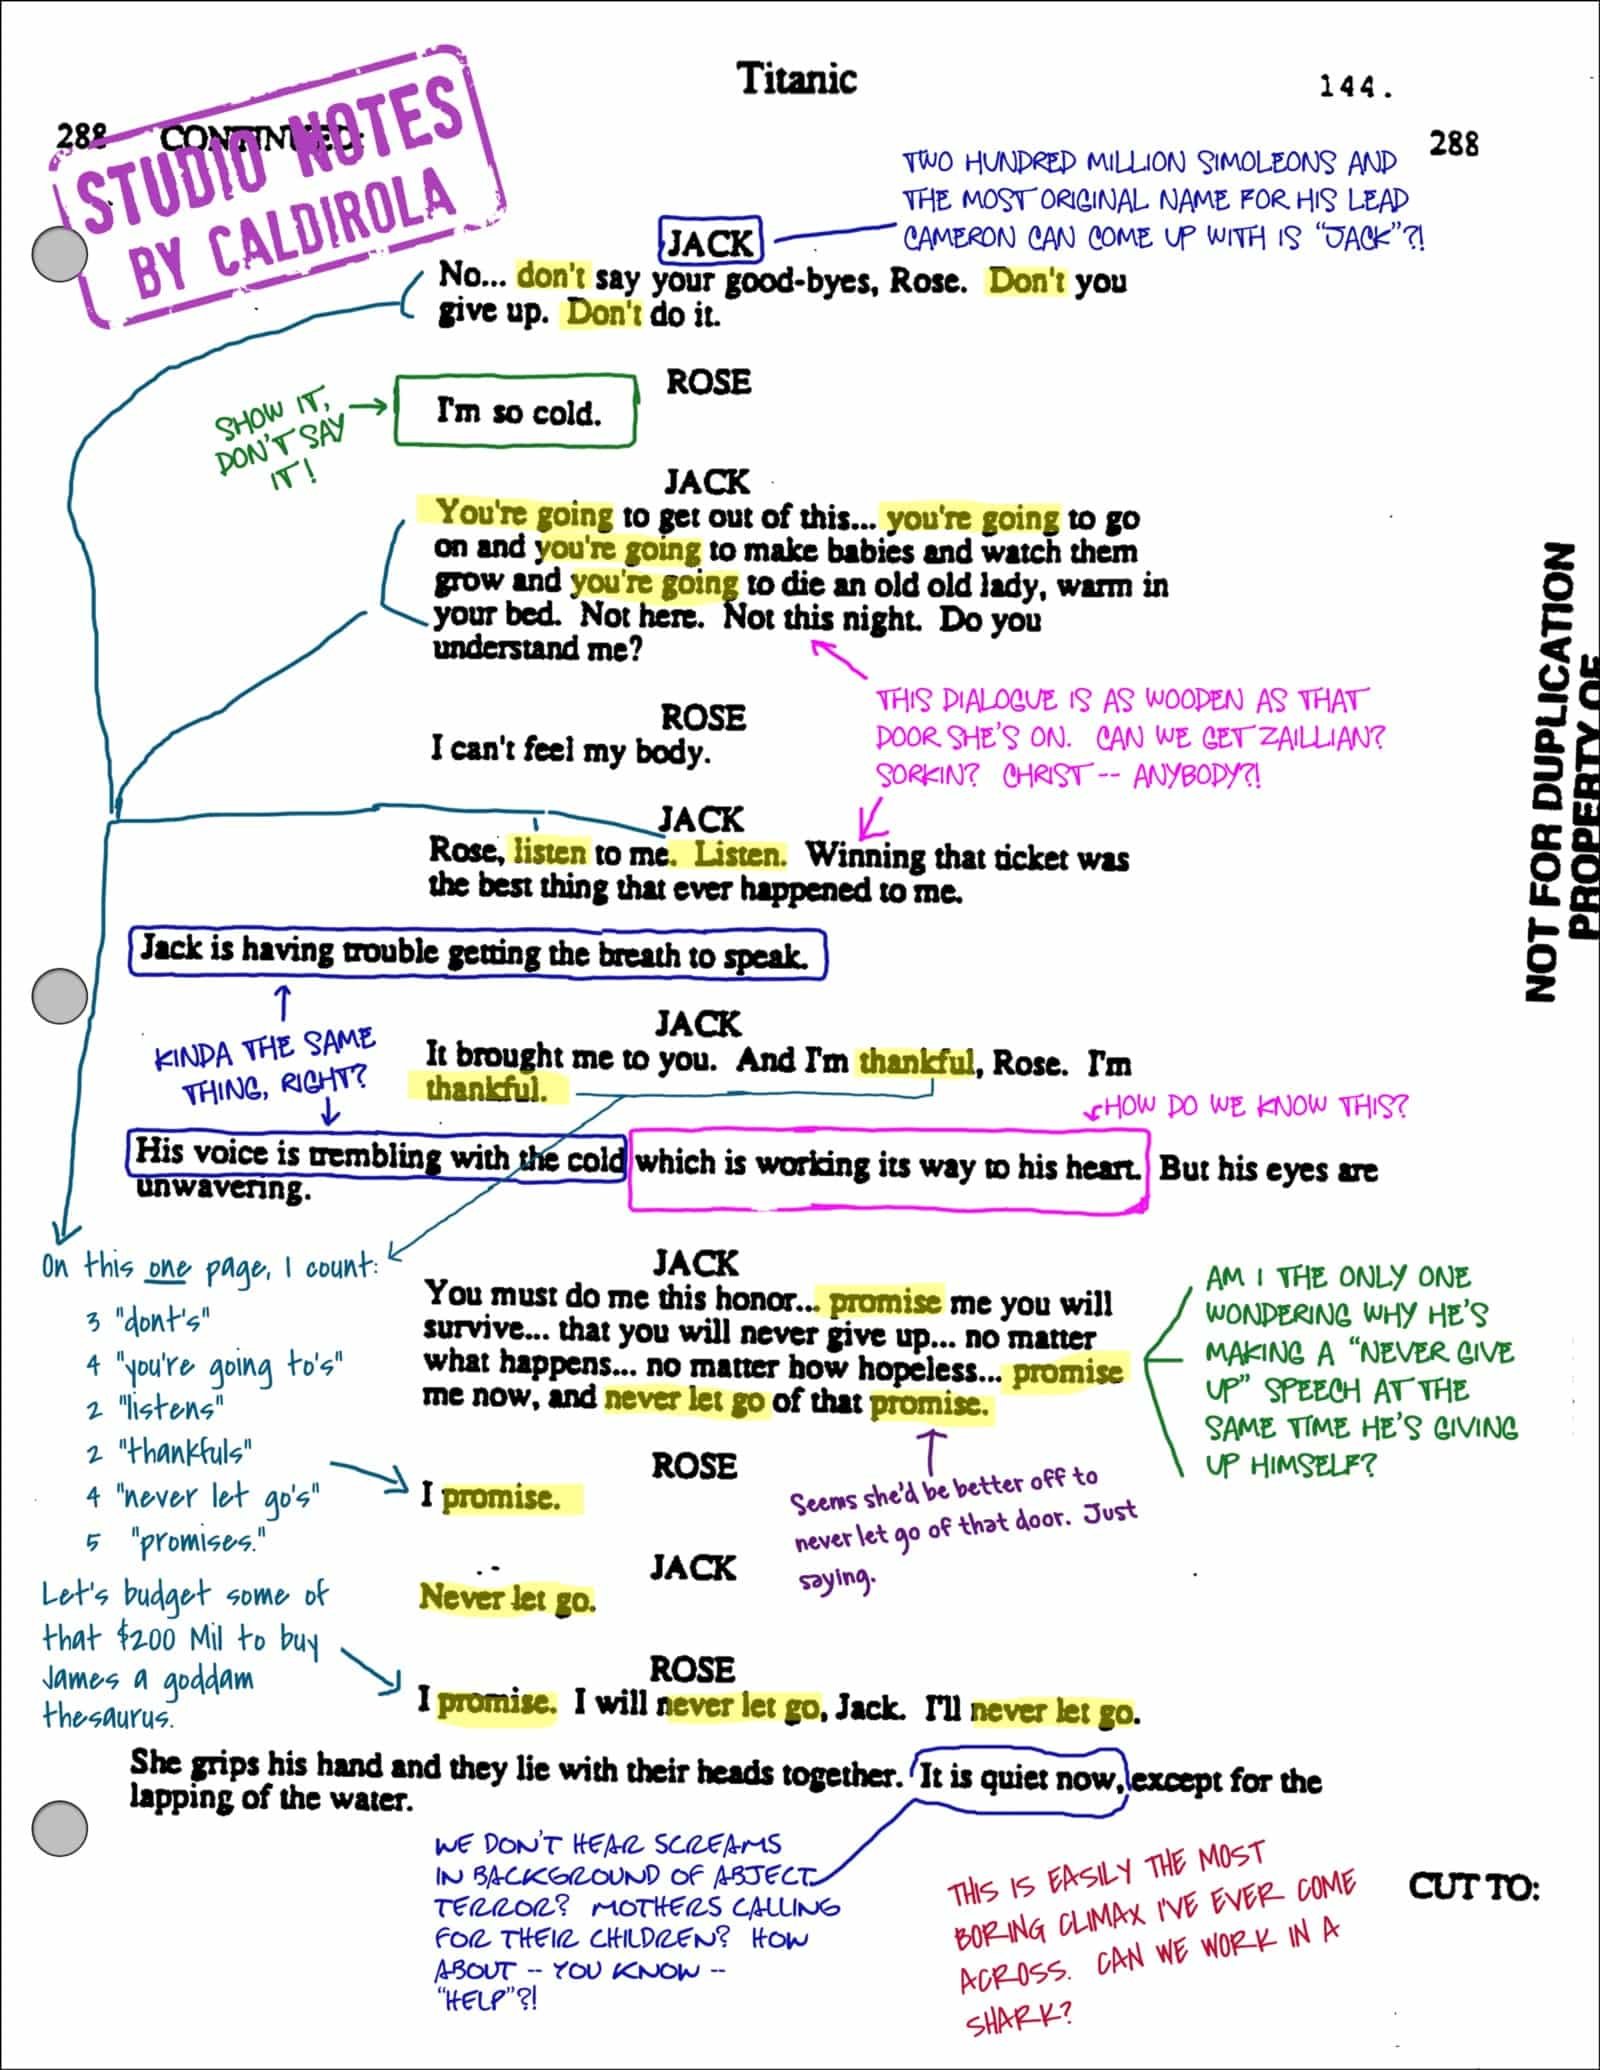 Titanic
144.
288 CONTINUED:
288
STUDIO NOTES
BY CALDIROLA
TWO HUNDRED MILLION SIMOLEONS AND
THE MOST ORIGINAL NAME FOR HIS LEAD
CAMERON CAN COME UP WITH IS "JACK"?!
JACK
No... don't say your good-byes, Rose. Don't you
give up. Don't do it.
ROSE
I'm so cold.
SHOW IT,
DON'T SAY
IT!
JACK
You're going to get out of this... you're going to go
on and you're going to make babies and watch them
grow and you're going to die an old old lady, warm in
your bed. Not here. Not this night. Do you
understand me?
THIS DIALOGUE IS AS WOODEN AS THAT
DOOR SHE'S ON. CAN WE GET ZAILLIAN?
SORKIN? CHRIST -- ANYBODY?!
ROSE
I can't feel my body.
JACK
Rose, listen to me. Listen. Winning that ticket was
the best thing that ever happened to me.
NOT FOR DUPLICATION
PROPERTY OF
Jack is having trouble getting the breath to speak.
KINDA THE SAME
THING, RIGHT?
JACK
It brought me to you. And I'm thankful, Rose. I'm
thankful.
HOW DO WE KNOW THIS?
His voice is trembling with the cold which is working its way to his heart. But his eyes are
unwavering.
On this one page, I count:
3 "dont's"
4 "you're going to's"
2 "listens"
2 "thankfuls"
4 "never let go's"
5 "promises."
Let's budget some of
that $200 Mil to buy
James a goddam
thesaurus.
JACK
You must do me this honor... promise me you will
survive... that you will never give up... no matter
what happens... no matter how hopeless... promise
me now, and never let go of that promise.
AM I THE ONLY ONE
WONDERING WHY HE'S
MAKING A "NEVER GIVE
UP" SPEECH AT THE
SAME TIME HE'S GIVING
UP HIMSELF?
ROSE
I promise.
Seems she'd be better off to
never let go of that door. Just
saying.
JACK
Never let go.
ROSE
I promise. I will never let go, Jack. I'll never let go.
She grips his hand and they lie with their heads together. It is quiet now, except for the
lapping of the water.
WE DON'T HEAR SCREAMS
IN BACKGROUND OF ABJECT
TERROR? MOTHERS CALLING
FOR THEIR CHILDREN? HOW
ABOUT -- YOU KNOW --
"HELP"?!
THIS IS EASILY THE MOST
BORING CLIMAX I'VE EVER COME
ACROSS. CAN WE WORK IN A
SHARK?
CUT TO: